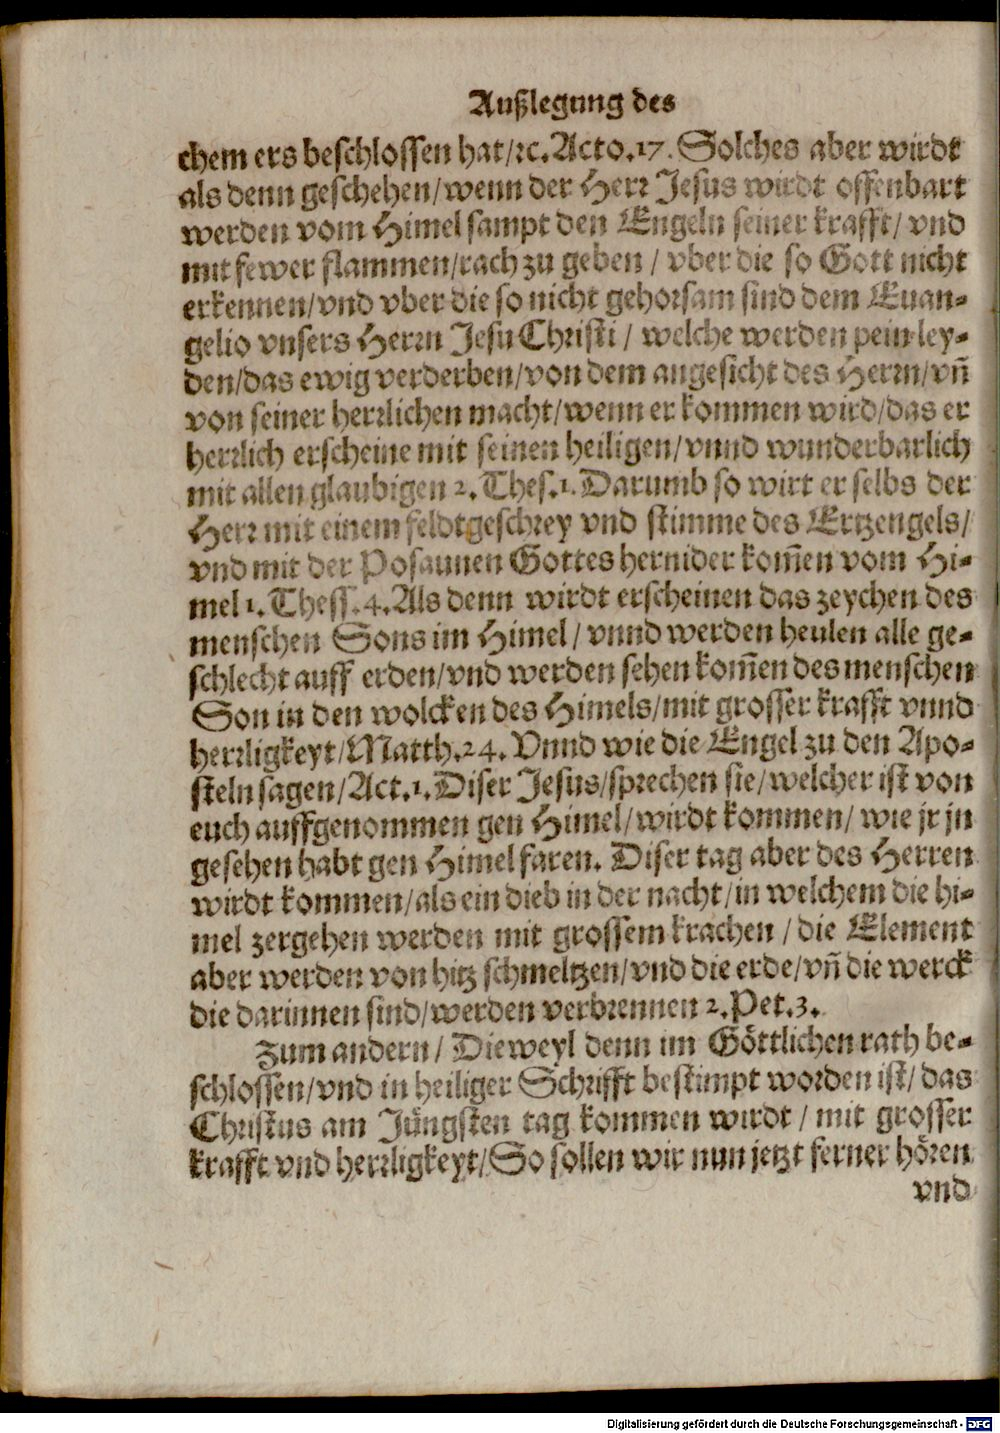 Außlegung des
chem ers beschlossen hat/ꝛc. Acto. 17. Solches aber wirdt
als denn geschehen/wenn der Herr Jesus wirdt offenbart
werden vom Himel sampt den Engeln seiner krafft/ vnd
mit fewer flammen/rach zu geben / vber die so Gott nicht
erkennen/vnd vber die so nicht gehorsam sind dem Euan-
gelio vnsers Herrn Jesu Christi / welche werden pein ley-
den/das ewig verderben/von dem angesicht des Herrn/vñ
von seiner herrlichen macht/wenn er kommen wird/das er
herrlich erscheine mit seinen heiligen/vnnd wunderbarlich
mit allen glaubigen 2. Thes. 1. Darumb so wirt er selbs der
Herr mit einem feldtgeschrey vnd stimme des Ertzengels/
vnd mit der Posaunen Gottes hernider kom̃en vom Hi-
mel 1. Thess. 4. Als denn wirdt erscheinen das zeychen des
menschen Sons im Himel / vnnd werden heulen alle ge-
schlecht auff erden/vnd werden sehen kom̃en des menschen
Son in den wolcken des Himels/mit grosser krafft vnnd
herrligkeyt/Matth. 24. Vnnd wie die Engel zu den Apo-
steln sagen/Act. 1. Diser Jesus/sprechen sie/welcher ist von
euch auffgenommen gen Himel/wirdt kommen/ wie jr jn
gesehen habt gen Himel faren. Diser tag aber des Herren
wirdt kommen/als ein dieb in der nacht/in welchem die hi-
mel zergehen werden mit grossem krachen / die Element
aber werden von hitz schmeltzen/vnd die erde/vñ die werck
die darinnen sind/werden verbrennen 2. Pet. 3.
Zum andern / Dieweyl denn im Göttlichen rath be-
schlossen/vnd in heiliger Schrifft bestimpt worden ist/ das
Christus am Jüngsten tag kommen wirdt / mit grosser
krafft vnd herrligkeyt/So sollen wir nun jetzt ferner hören
vnd
Digitalisierung gefördert durch die Deutsche Forschungsgemeinschaft - DFG